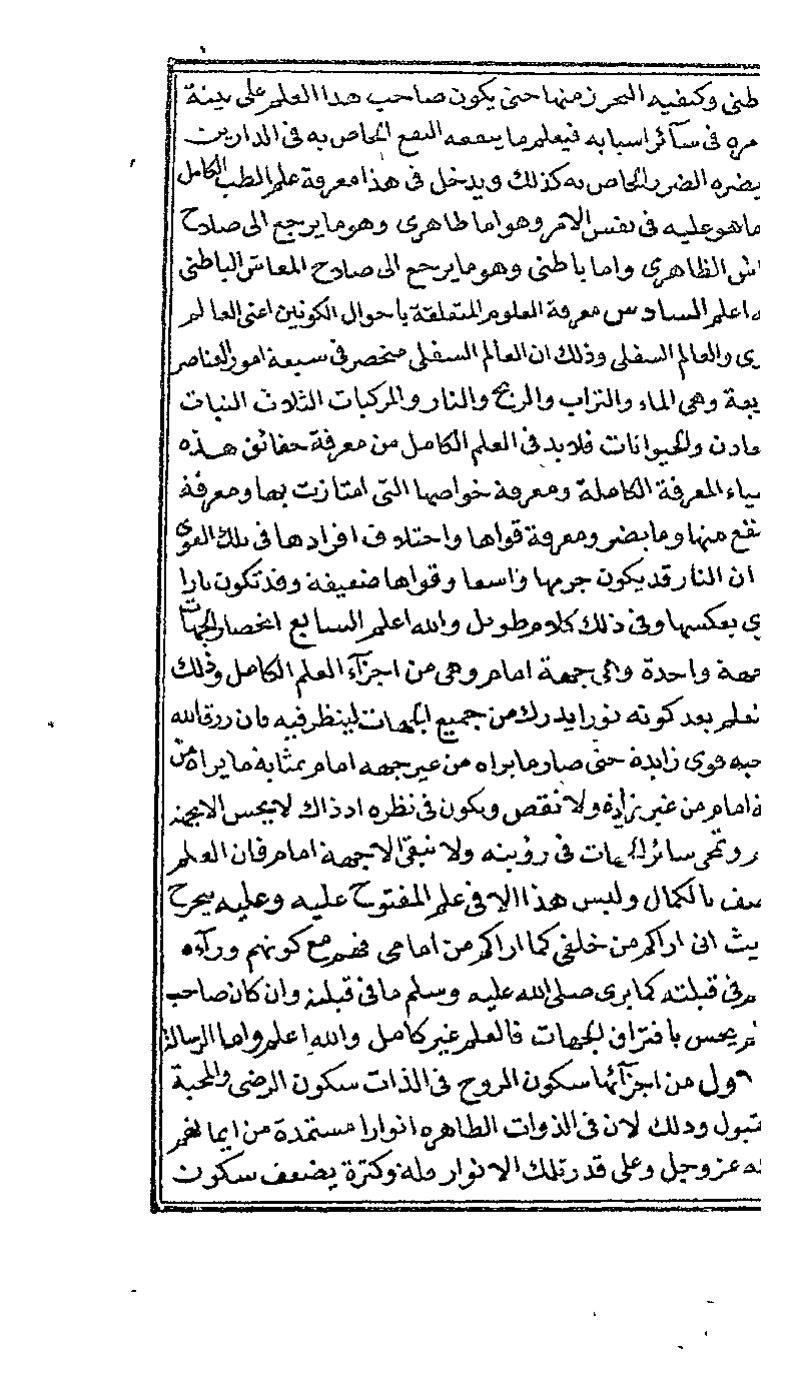 طنى وكيفيه التحرز منها حتى يكون صاحب هذا العلم على بينة
مره فى سآئر اسبابه فيعلم ما ينفعه النفع الخاص به فى الدارين
يضره الضرر الخاص به كذلك ويدخل فى هذا معرفة علم الطب الكامل
ماهو عليه فى نفس الامر وهو اما ظاهرى وهو ما يرجع الى صلاح
اش الظاهرى واما باطنى وهو ما يرجع الى صلاح المعاش الباطنى
ه اعلم السادس معرفة العلوم المتعلقة باحوال الكونين اعنى العالم
وى والعالم السفلى وذلك ان العالم السفلى منحصر فى سبعة امور العناصر
بعة وهى الماء والتراب والريح والنار والمركبات الثلاث النبات
عادن والحيوانات فلابد فى العلم الكامل من معرفة حقائق هذه
شياء المعرفة الكاملة ومعرفة خواصها التى امتازت بها ومعرفة
نفع منها وما يضر ومعرفة قواها واختلاف افرادها فى تلك القوى
ان النار قد يكون جرمها واسعا وقواها ضعيفة وقد تكون نارا
ى بعكسها وفى ذلك كلام طويل والله اعلم السابع انحصار الجهات
جهة واحدة وهى جهة امام وهى من اجزآء العلم الكامل وذلك
لعلم بعد كونه نورا يدرك من جميع الجهات لينظر فيه فان رزق الله
حبه قوى زايدة حتى صار ما يراه من غير جهه امام بمثابة ما يراه من
ة امام من غير زيادة ولا نقص ويكون فى نظره اذ ذاك لا يحس الا بجهة
م وتمحى سائر الجهات فى رؤيته ولا تبقى الا جهة امام فان العلم
صف بالكمال وليس هذا الا فى علم المفتوح عليه وعليه يخرج
يث انى اراكم من خلفى كما اراكم من امامى فهم مع كونهم ورآءه
م فى قبلته كما يرى صلى الله عليه وسلم ما فى قبلته وان كان صاحب
لم يحس بافتراق الجهات فالعلم غير كامل والله اعلم واما الرسالة
ول من اجزآئها سكون الروح فى الذات سكون الرضى والمحبة
قبول وذلك لان فى الذوات الطاهره انوارا مستمدة من ايمانهم
له عز وجل وعلى قدر تلك الانوار قلة وكثرة يضعف سكون